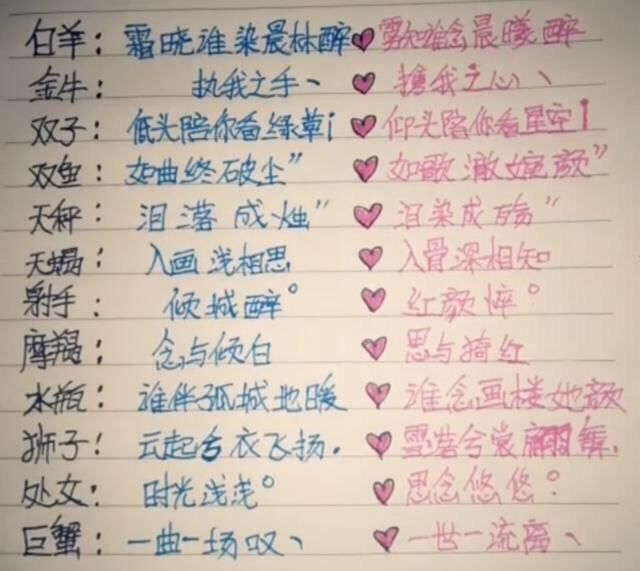 白羊：霜晓谁染晨林醉♥雾知谁念晨曦醉
金牛：执我之手丶♥攜我之心丶
双子：低头陪你看绿草i♥仰头陪你看星空i
双鱼：如曲终破尘”♥如歌澈婉颜”
天秤：泪落成烛”♥泪染成殇”
天蝎：入画浅相思♥入骨深相知
射手：倾城醉°♥红颜悴°
摩羯：念与倾白♥思与猗红
水瓶：谁伴孤城地暖♥谁念画楼她颜
狮子！云起兮衣飞扬.♥雪落兮裳翩舞.
处女：时光浅浅°♥思念悠悠°
巨蟹：一曲一场叹丶♥一世一流离丶